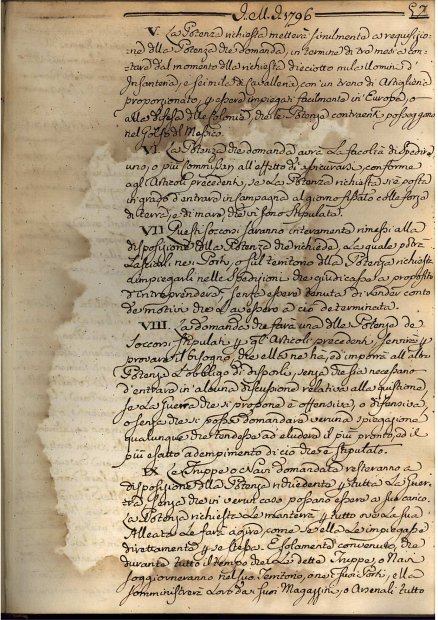 J.M.J. 1796
V. La Potenza richiesta metterà similmente a requisizio
ne della Potenza che domanda, in termine di tre mesi a con
tare dal momento della richiesta dieciotto mila uomini d'
Infanteria, e sei mila di Cavalleria, con un treno di Artiglieria
proporzionato, per essere impiegati facilmente in Europa, o
alla difesa delle Colonie, che le Potenze contraenti posseggono
nel Golfo del Messico.
VI. La Potenza che domanda avrà la facoltà di spedire
uno, o più Commissari, all'effetto di assicurarsi, conforme
agli Articoli precedenti, se la Potenza richiesta si è posta
in grado d'entrare in Campagna al giorno fissato colle forze
di terra, e di mare, che vi sono stipulate.
VII. Questi soccorsi saranno interamente rimessi alla
disposizione della Potenza che richiede, la quale potrà
lasciarli nei Porti, o sul territorio della Potenza richiesta
o impiegarli nelle Spedizioni che giudicasse a proposito
d'intraprendere, senza essere tenuta di render conto
de motivi che l'avessero a ciò determinata.
VIII. La domanda che farà una delle Potenze de
Soccorsi stipulati per gli Articoli precedenti, servirà per
provare il bisogno, che ella ne ha, ed imporrà all'altra
Potenza l'obligo di disporli, senza che sia necessario
d'entrare in alcuna discussione relativa alla questione
se la Guerra che si propone è offensiva, o difensiva,
o senza che si possa domandare veruna spiegazione
qualunque che tendesse ad eludere il più pronto, ed il
più esatto adempimento di ciò che è stipulato.
IX. Le Truppe, o Navi domandate resteranno a
disposizione della Potenza richiedente per tutta la Guer
ra, senza che in verun caso possano essere a suo carico.
La Potenza richiesta le manterrà per tutto ove la sua
Alleata le farà agire, come se ella le impiegasse
direttamente per se stessa. È solamente convenuto, che
durante tutto il tempo, che le dette Truppe, o Navi
soggiorneranno nel suo Territorio, o ne' suoi Porti, ella
somministrerà loro da suoi Magazzini, o Arsenali tutto